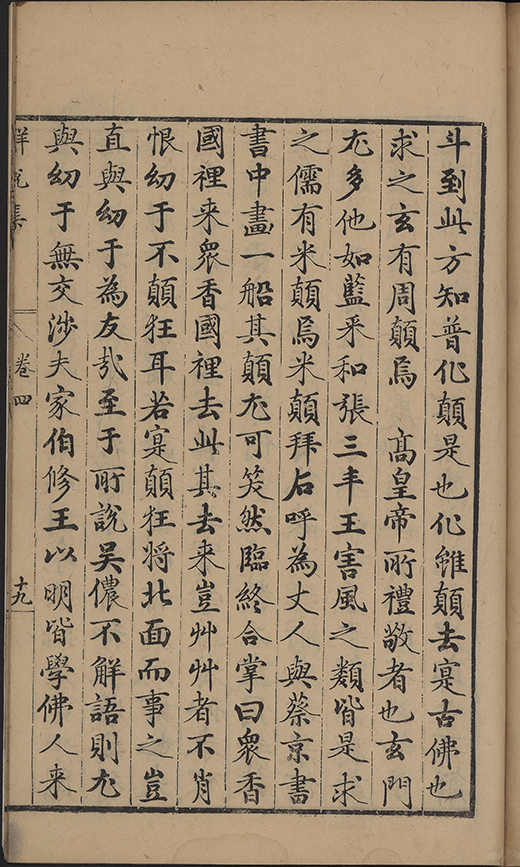 斗到此方知普化顛是也化雖顛去寔古佛也
求之玄有周顛焉　高皇帝所禮敬者也玄門
尤多他如藍采和張三丰王害風之類皆是求
之儒有米顛焉米顛拜石呼為丈人與蔡京書
書中畫一船其顛尤可笑然臨終合掌曰衆香
國裡来衆香國裡去此其去来豈艸艸者不肖
恨幼于不顛狂耳若寔顛狂將北面而事之豈
直與幼于為友㢤至于所說吳儂不解語則尤
與幼于無交渉夫家伯修王以明皆學佛人来
卷四
十九